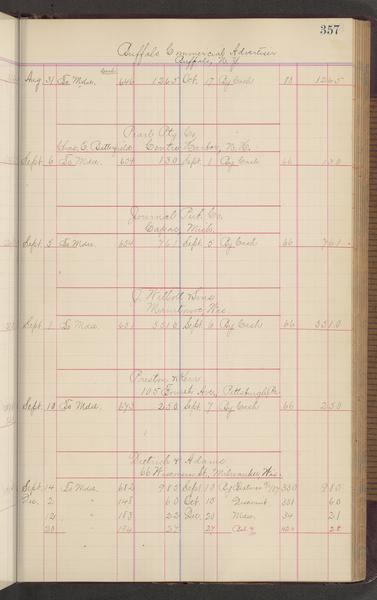 357
Buffalo Commercial Advertiser
Buffalo, N.Y.
Aug. 31 To Mdse. 646 1265 Oct. 17 By Cash 83 1265
Pearl Ptg Co
Centre Harbor, N.H.
Sept. 6 To Mdse. 130 Sept. 1 By Cash 66 130
Journal Pub. Co.
Capac, Mich.
Sept. 5 To Mdse. 654 761 Sept. 5 By Cash 66 761
Sons
Manitowoc, Wis.
Sept. 1 To Mdse. 651 3510 Sept. 6 By Cash 66 3510
Preston &
105 Fourth Ave, Pittsburgh Pa.
Sept. 10 To Mdse. 673 250 Sept. 7 By Cash 66 250
Dietrich & Adams
66 Wisconsin St, Milwaukee Wis.
Sept. 14 To Mdse. 682 985 Sept. 10 By 330 985
Dec. 2 " 148 60 Oct. 10 " Discount 331 60
12 " 183 22 Dec. 20 " Mdse. 34 21
20 " 194 27 27 " Bal 28